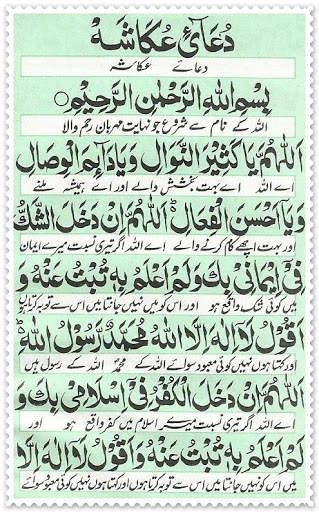 دُعَائے عُکَاشَہ
دعائے عکاشہ
بِسْمِ اللهِ الرَّحْمٰنِ الرَّحِيْمِ
اللہ کے نام سے شروع جو نہایت مہربان رحم والا
اَللّٰهُمَّ يَا كَثِيْرَ النَّوَالِ وَيَا دَآئِمَ الْوِصَالِ
اے اللہ اے بہت بخشش والے اور اے ہمیشہ ملنے
وَيَا اَحْسَنَ الْفِعَالِ اَللّٰهُمَّ اِنْ دَخَلَ الشَّكُّ
اور بہت اچھے کام کرنے والے اے اللہ اگر تیری نسبت میرے ایمان
فِيْ اِيْمَانِيْ بِكَ وَلَمْ اَعْلَمْ بِهٖ تُبْتُ عَنْهُ وَ
میں کوئی شک واقع ہو اور اس کو میں نہیں جانتا میں اس سے توبہ کرتا ہوں
اَقُوْلُ لَا اِلٰهَ اِلَّا اللهُ مُحَمَّدٌ رَّسُوْلُ اللهِ
اور کہتا ہوں نہیں کوئی معبود سوائے اللہ کے محمد اللہ کے رسول ہیں
اَللّٰهُمَّ اِنْ دَخَلَ الْكُفْرُ فِيْ اِسْلَامِيْ بِكَ وَ
اے اللہ اگر تیری نسبت میرے اسلام میں کفر واقع ہو اور
لَمْ اَعْلَمْ بِهٖ تُبْتُ عَنْهُ وَاَقُوْلُ لَا اِلٰهَ اِلَّا
میں اس کو نہیں جانتا میں اس سے توبہ کرتا ہوں اور کہتا ہوں نہیں کوئی معبود سوائے